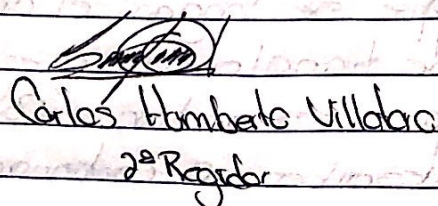 Carlos Humberto Villalara
2º Regidor